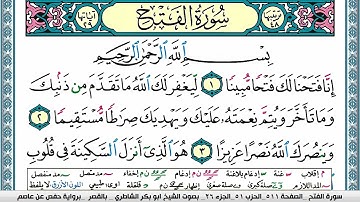 سُورَةُ الْفَتْحِ
بِسْمِ اللَّهِ الرَّحْمَٰنِ الرَّحِيمِ
إِنَّا فَتَحْنَا لَكَ فَتْحًا مُّبِينًا ١ لِّيَغْفِرَ لَكَ اللَّهُ مَا تَقَدَّمَ مِن ذَنۢبِكَ
وَمَا تَأَخَّرَ وَيُتِمَّ نِعْمَتَهُۥ عَلَيْكَ وَيَهْدِيَكَ صِرَٰطًا مُّسْتَقِيمًا ٢
وَيَنصُرَكَ اللَّهُ نَصْرًا عَزِيزًا ٣ هُوَ الَّذِىٓ أَنزَلَ السَّكِينَةَ فِى قُلُوبِ
سورة الفتح - الصفحة ٥١١ - الجزء ٢٦ - بصوت الشيخ أبو بكر الشاطري - بالقصر - برواية حفص عن عاصم